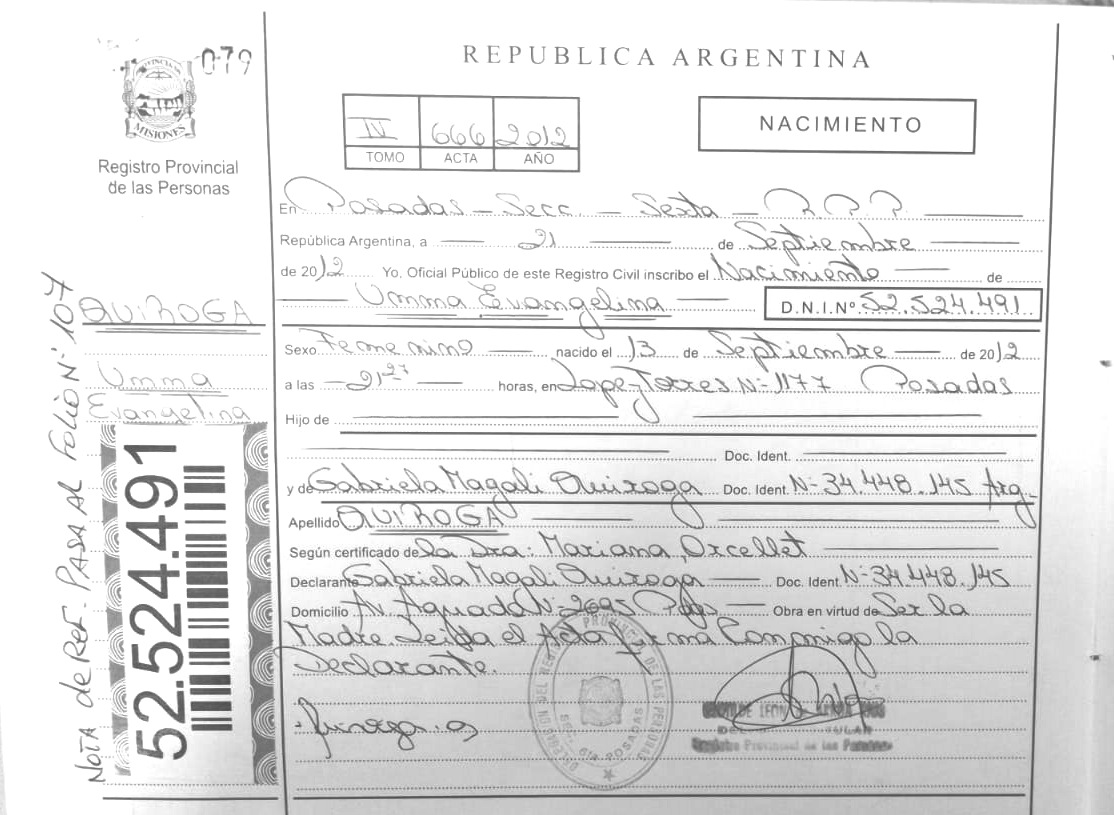 079
REPUBLICA ARGENTINA
MISIONES
Registro Provincial
de las Personas
IV 666 2012
TOMO ACTA AÑO
NACIMIENTO
En Posadas - Secc. - Sexta - R.P.P.
República Argentina, a 21 de Septiembre
de 2012 Yo, Oficial Público de este Registro Civil inscribo el Nacimiento de
Umma Evangelina D.N.I.Nº 52.524.491
Sexo Femenino nacido el 13 de Septiembre de 2012
a las 21 27 horas, en Lope Torres N- 1177 Posadas
Hijo de
Doc. Ident.
y de Gabriela Magali Quiroga Doc. Ident. N- 34.448.145 Arg.
Apellido QUIROGA
Según certificado de la Dra: Mariana Orcellet
Declarante Gabriela Magali Quiroga Doc. Ident N- 34448.145
Domicilio Av. Aguado N- 2695 Pdas Obra en virtud de Ser la
Madre Leída el Acta Firma Conmigo la
Declarante.
QUIROGA
Umma
Evangelina
52.524.491
NOTA de REF. PASA AL FOLIO N- 107
SEC. 6ta. POSADAS
Registro Provincial de las Personas